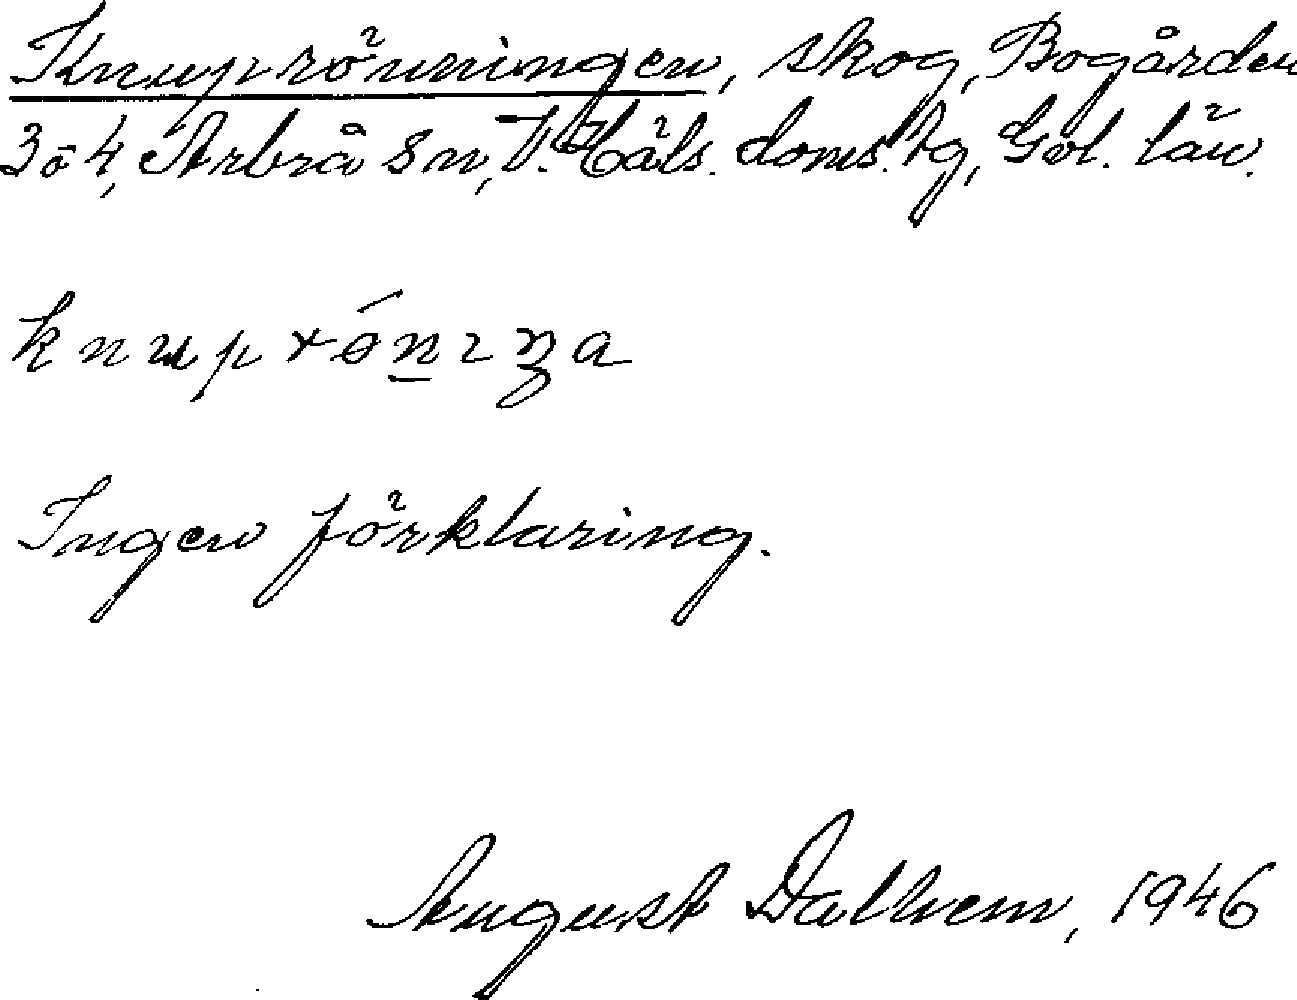 Knuprönningen, skog, Bogården
3 o 4, Arbrå sn, V. Häls. doms. tg, Gvl. län.
knuprónıŋa
Ingen förklaring.
August Dalhem, 1946